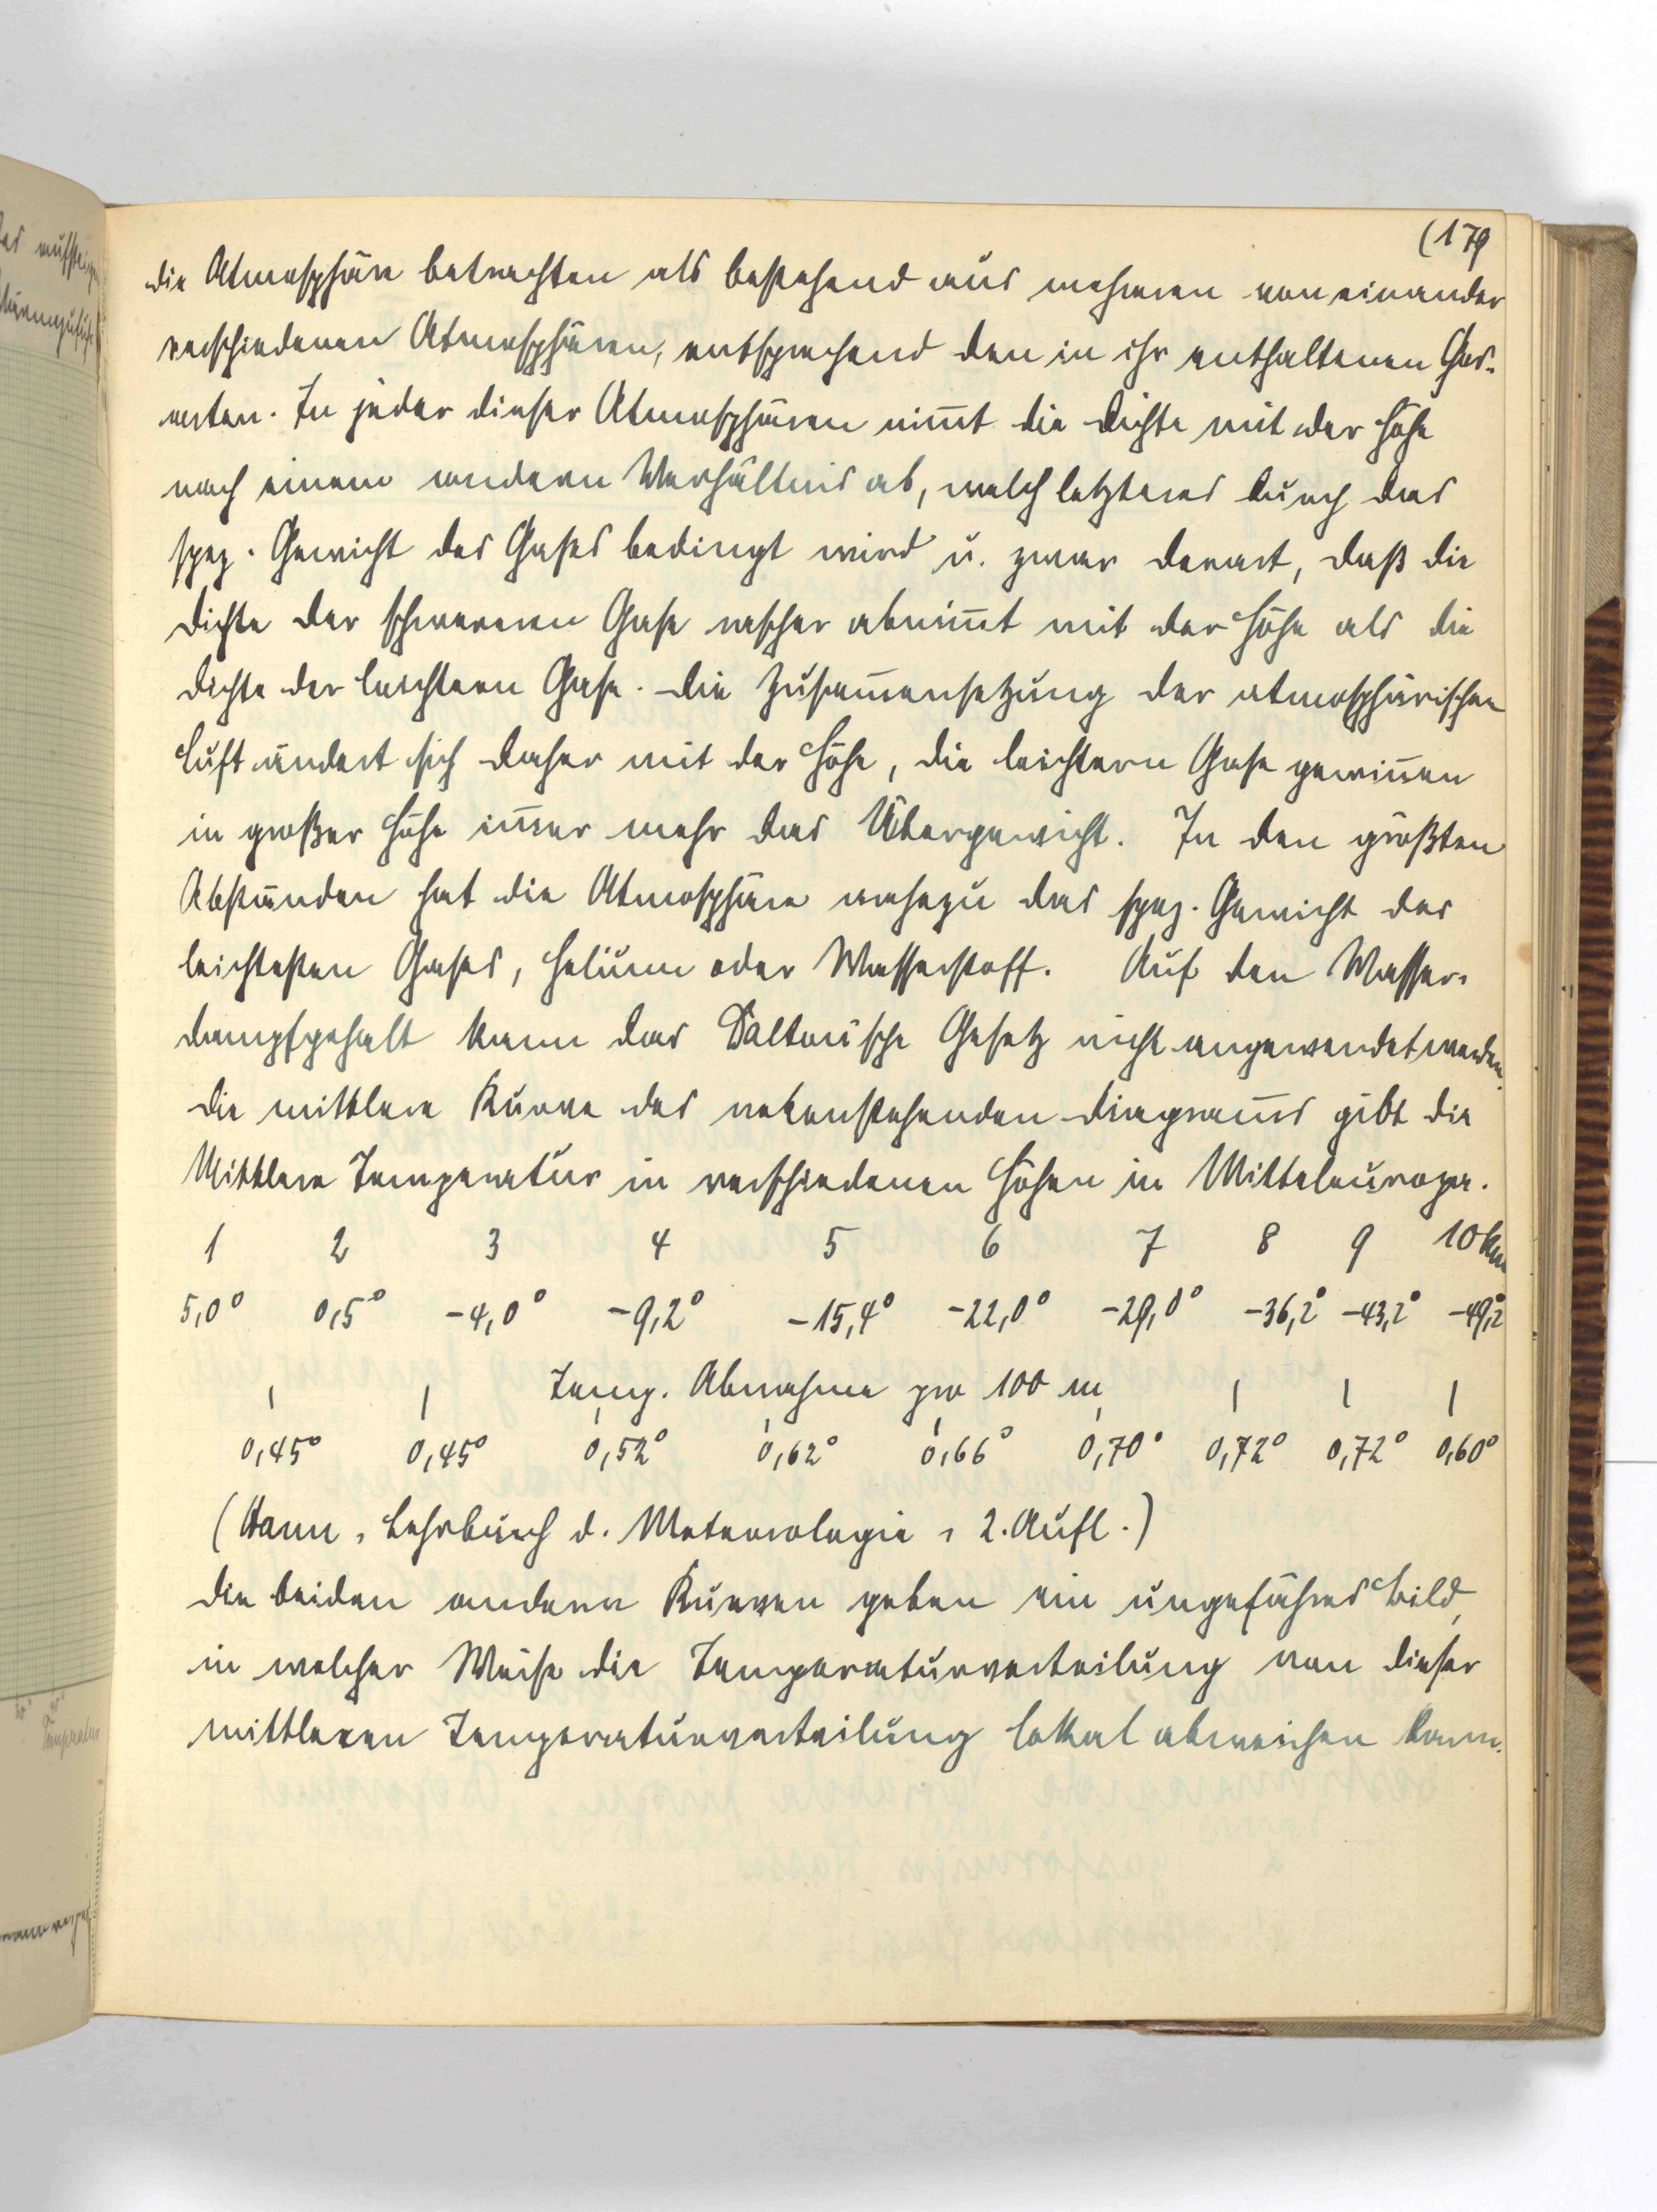 (179
die Atmosphäre betrachten als bestehend aus mehreren voneinander
verschiedenen Atmosphären, entsprechend den in ihr enthaltenen Gas-
arten. In jeder dieser Atmosphären nim̅t die Dichte mit der Höhe
nach einem andern Verhältnis ab, welch letzteres durch das
spez. Gewicht des Gases bedingt wird u. zwar derart, daß die
Dichte der schwereren Gase rascher abnim̅t mit der Höhe als die
Dichte der leichtern Gase. Die Zusam̅ensetzung der atmosphärischen
Luft ändert sich daher mit der Höhe, die leichtern Gase gewin̅en
in großer Höhe im̅er mehr das Übergewicht. In den größten
Abständen hat die Atmosphäre nahezu das spez. Gewicht des
leichtesten Gases, Helium oder Wasserstoff. Auf den Wasser-
dampfgehalt kann das Daltonische Gesetz nicht angewendet werden.
Die mittlere Kurve des nebenstehenden Diagram̅s gibt die
Mittlere Temperatur in verschiedenen Höhen in Mitteleuropa.
1 2 3 4 5 6 7 8 9 10 km
5,0° 0,5° -4,0° -9,2° -15,4° -22,0° -29,0° -36,2° -43,2° -49,2°
Temp. Abnahme pro 100 m
0,45° 0,45° 0,52° 0,62° 0,66° 0,70° 0,72° 0,72° 0,60°
(Hann, Lehrbuch d. Meteorologie, 2. Aufl.)
Die beiden andern Kurven geben ein ungefähres Bild,
in welcher Weise die Temperaturverteilung von dieser
mittleren Temperaturverteilung lokal abweichen kann.
Temperatur